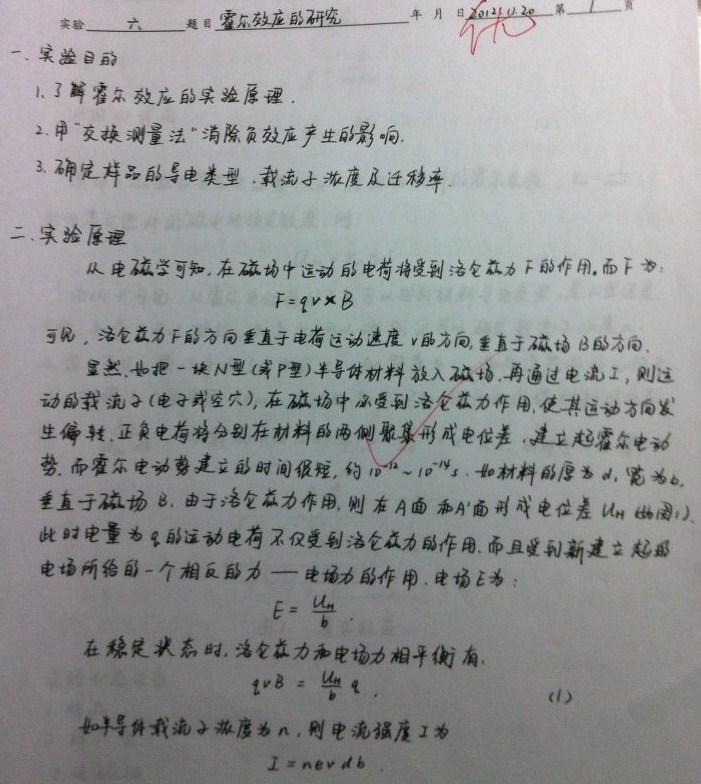 实验 六 题目 霍尔效应的研究 年 月 日 2012.11.20 第 1 页
优
一、实验目的
1.了解霍尔效应的实验原理.
2.用“交换测量法”消除负效应产生的影响.
3.确定样品的导电类型、载流子浓度及迁移率.
二、实验原理
从电磁学可知,在磁场中运动的电荷将受到洛仑兹力F的作用。而F为:
F=qv×B
可见,洛仑兹力F的方向垂直于电荷运动速度v的方向,垂直于磁场B的方向.
显然,如把一块N型(或P型)半导体材料放入磁场,再通过电流I,则运
动的载流子(电子或空穴),在磁场中必受到洛仑兹力作用,使其运动方向发
生偏转.正负电荷将分别在材料的两侧聚集形成电位差,建立起霍尔电动
势.而霍尔电动势建立的时间很短,约10⁻¹²~10⁻¹⁴s.如材料的厚为d,宽为b,
垂直于磁场B.由于洛仑兹力作用,则在A面和A'面形成电位差U_H(如图1).
此时电量为q的运动电荷不仅受到洛仑兹力的作用,而且受到新建立起的
电场所给的一个相反的力——电场力的作用.电场E为:
E = U_H/b .
在稳定状态时,洛仑兹力和电场力相平衡有.
qvB = U_H/b q . (1)
如半导体载流子浓度为n,则电流强度I为
I=nevdb.